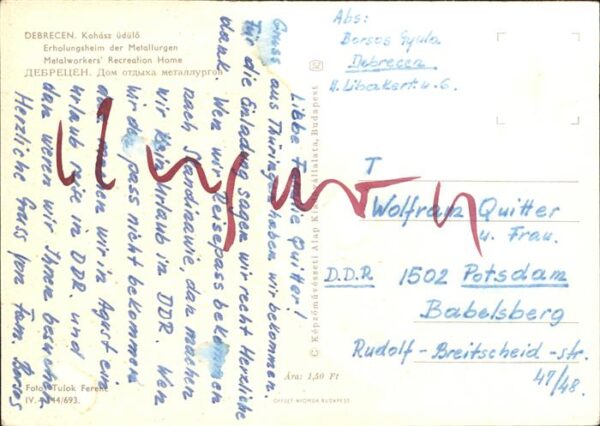 DEBRECEN. Kohász üdülő
Erholungsheim der Metallurgen
Metalworkers' Recreation Home
ДЕБРЕЦЕН. Дом отдыха металлургов
Libbe Familie Quitter!
Gruss aus Thüringen haben wir bekommen.
Für die Einladung sagen wir recht Herzliche
dank. Wen wir Reisepass bekommen
nach Skandinawie, dan machen
wir kein Urlaub in DDR. Wen
wir de pass nicht bekommen
dan machen wir in Agust ein
urlaub reise in DDR. und
dan weren wir Ihnen besuchen
Herzliche Gruss von Fam. Borsos
Foto: Tulok Ferenc
IV.-4144/693.
© Képzőművészeti Alap Kiadóvállalata, Budapest
Abs:
Borsos Gyula
Debrecen
u. 6.
T
Wolfranz Quitter
u. Frau.
D.D.R. 1502 Potsdam
Babelsberg
Rudolf-Breitscheid-str.
47/48.
Ára: 1,50 Ft
OFFSET-NYOMDA BUDAPEST